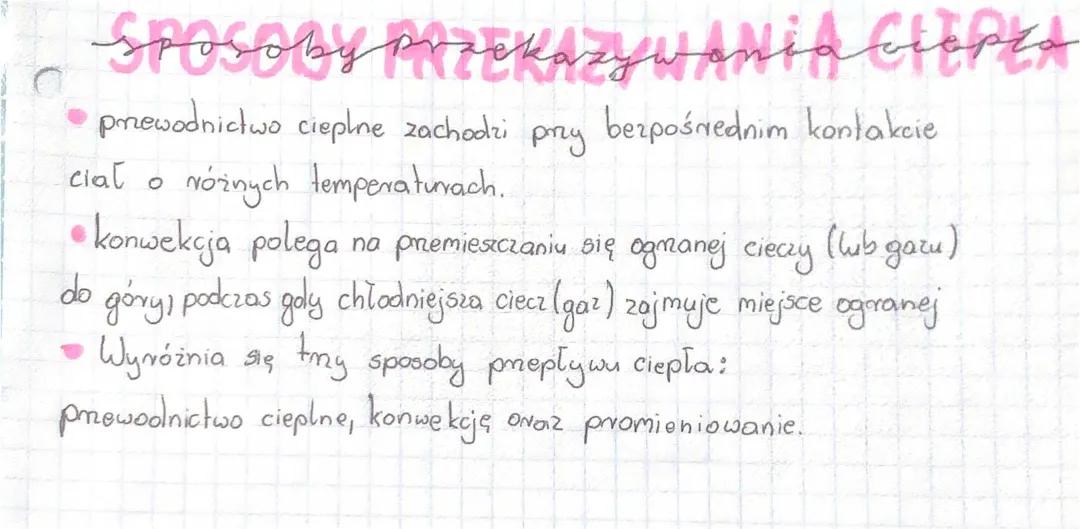 SPOSOBY PRZEKAZYWANIA CIEPŁA
sposoby przekazywania ciepła
• przewodnictwo cieplne zachodzi przy bezpośrednim kontakcie
ciał o różnych temperaturach.
• konwekcja polega na przemieszczaniu się ogrzanej cieczy (lub gazu)
do góry, podczas gdy chłodniejsza ciecz (gaz) zajmuje miejsce ogrzanej
• Wyróżnia się trzy sposoby przepływu ciepła:
przewodnictwo cieplne, konwekcję oraz promieniowanie.